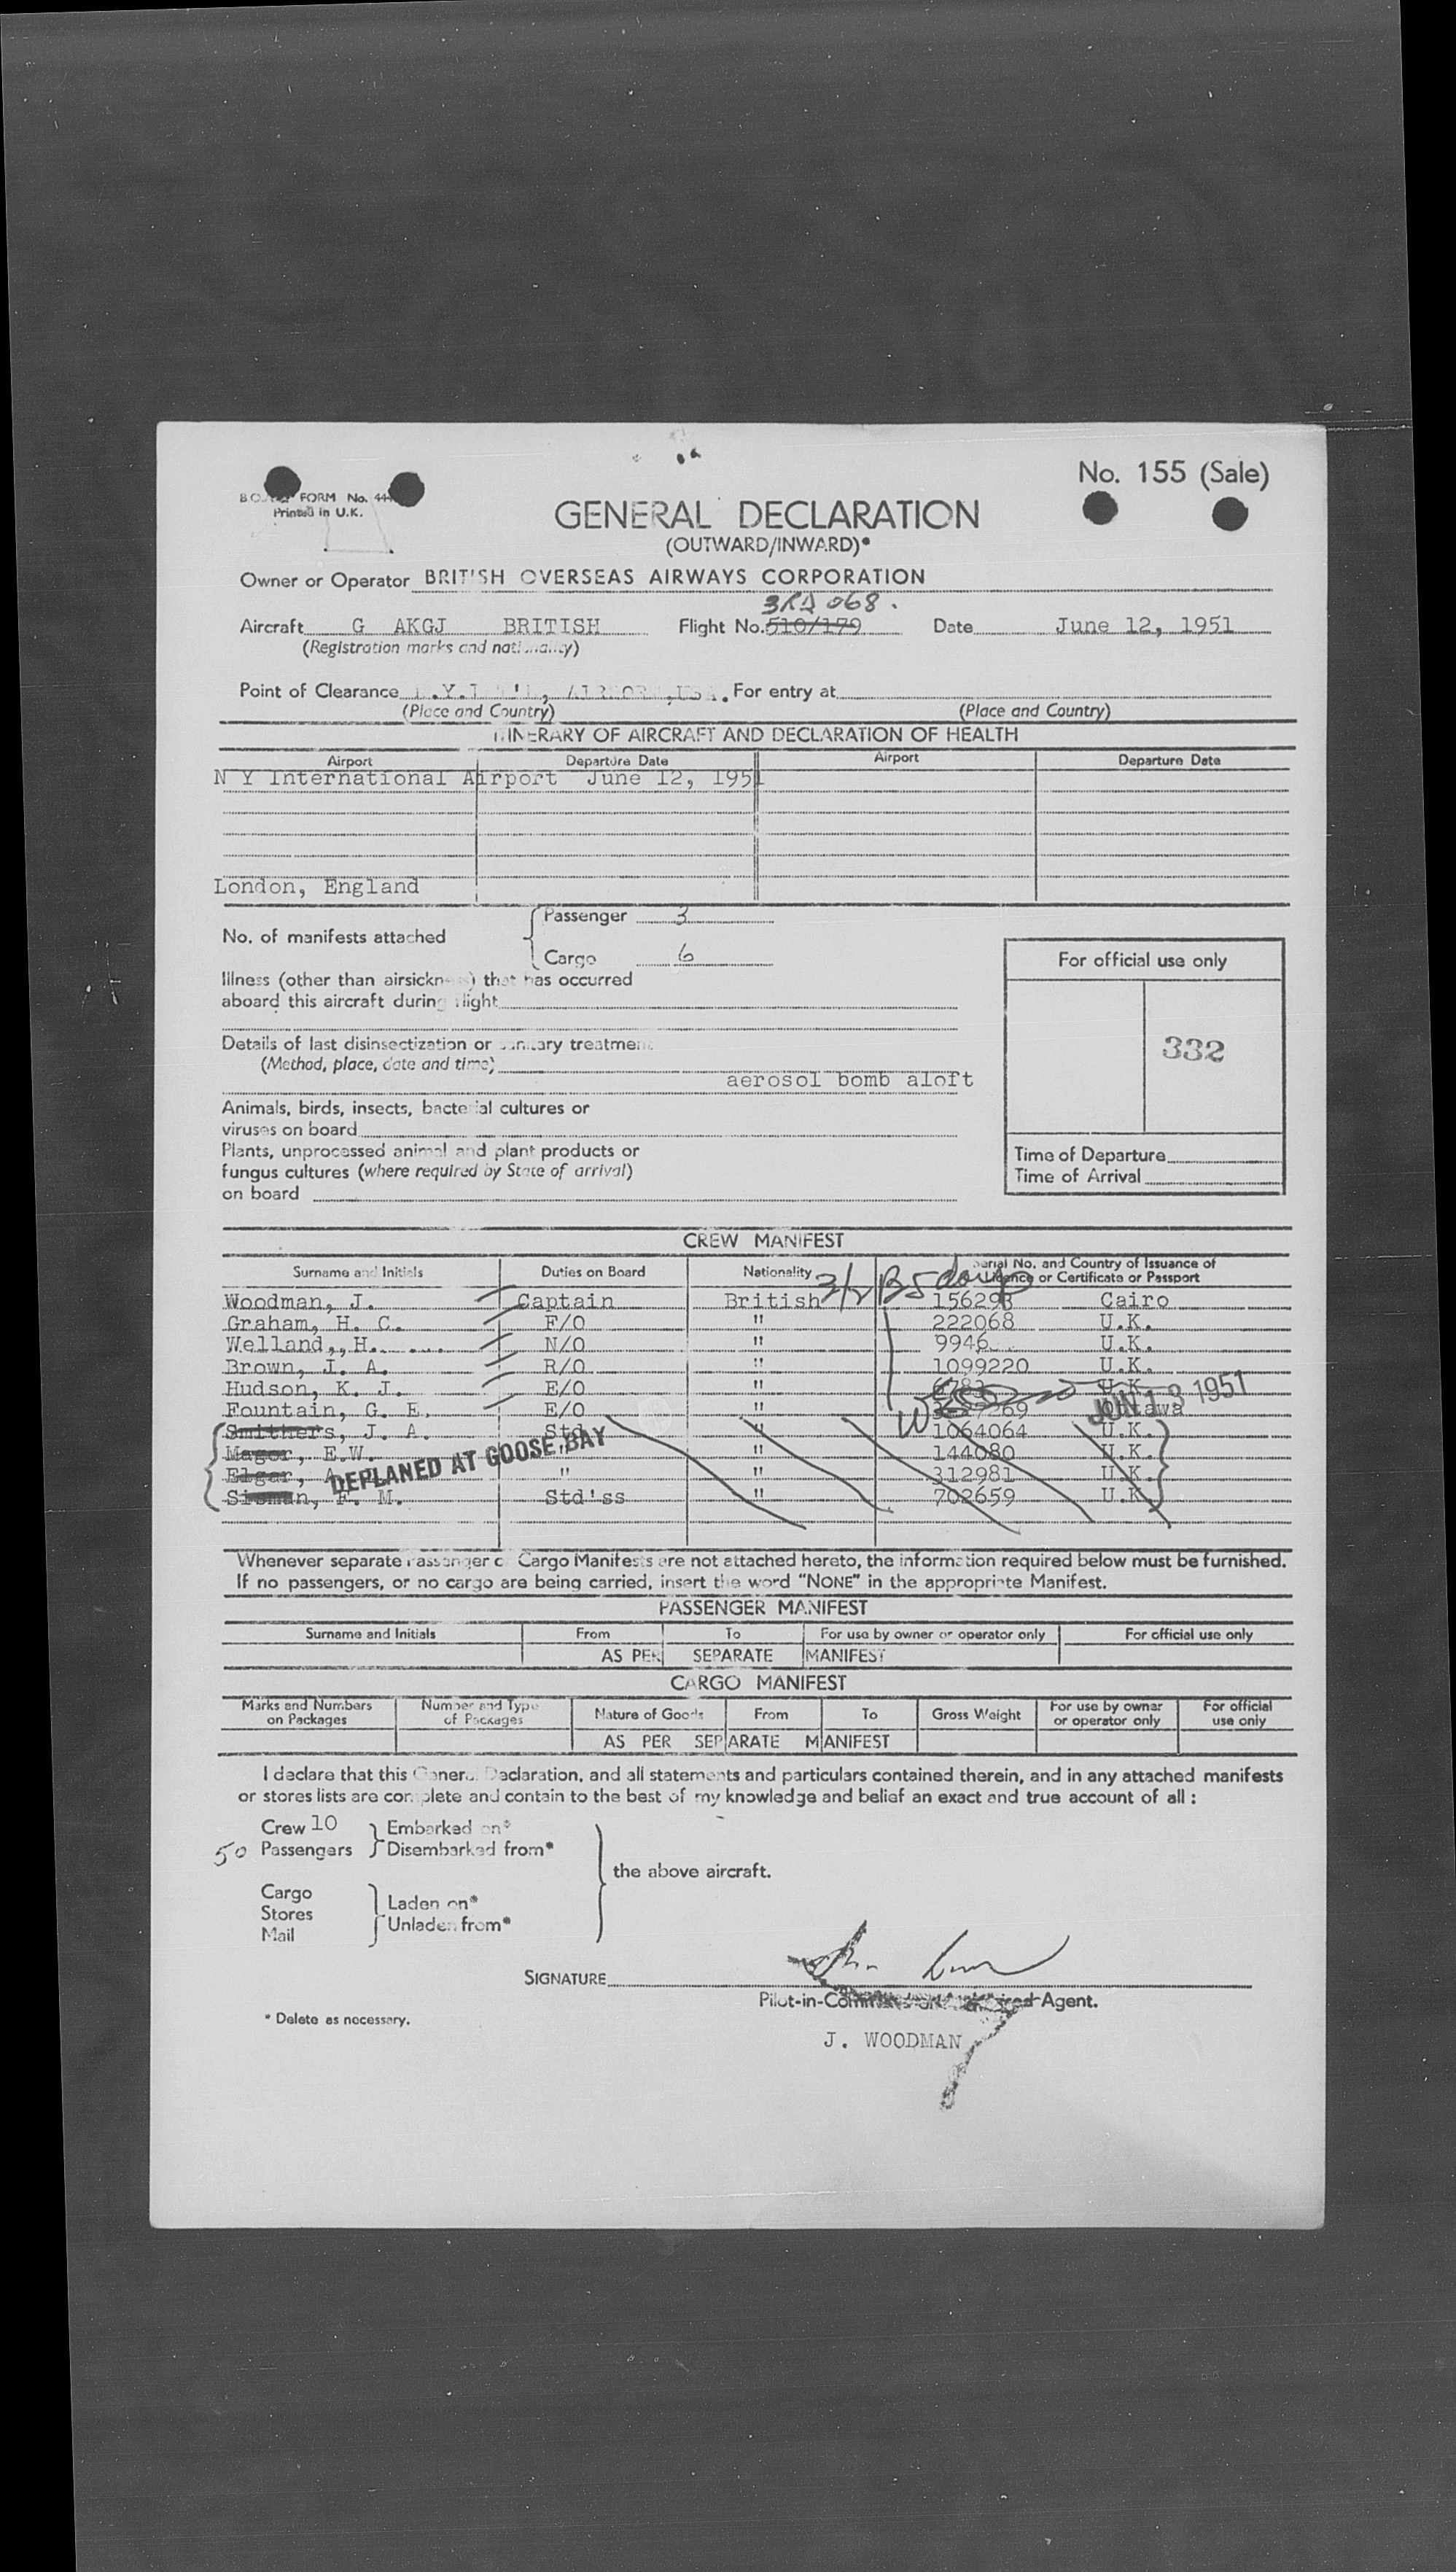 No. 155 (Sale)
FORM No.
Printed in U.K.
GENERAL DECLARATION
(OUTWARD/INWARD)*
Owner or Operator BRITISH OVERSEAS AIRWAYS CORPORATION
3RD 068.
Aircraft G AKGJ BRITISH Flight No. 510/179 Date June 12, 1951
(Registration marks and nationality)
Point of Clearance For entry at
(Place and Country) (Place and Country)
ITINERARY OF AIRCRAFT AND DECLARATION OF HEALTH
Airport Departure Date Airport Departure Date
N Y International Airport June 12, 1951
London, England
Passenger 3
No. of manifests attached
Cargo 6
For official use only
Illness (other than airsickness) that has occurred
aboard this aircraft during flight
332
Details of last disinsectization or sanitary treatment
(Method, place, date and time)
aerosol bomb aloft
Animals, birds, insects, bacterial cultures or
viruses on board
Plants, unprocessed animal and plant products or
fungus cultures (where required by State of arrival)
on board
Time of Departure
Time of Arrival
CREW MANIFEST
Surname and Initials Duties on Board Nationality Serial No. and Country of Issuance of
Licence or Certificate or Passport
Woodman, J. Captain British 156298 Cairo
Graham, H. C. F/O " 222068 U.K.
Welland,,H. N/O " 9946 U.K.
Brown, J. A. R/O " 1099220 U.K.
Hudson, K. J. E/O " U.K.
Fountain, G. E. E/O " Ottawa
JUN 13 1951
Smithers, J. A. Std " 1064064 U.K.
Mager, E.W. " " 144080 U.K.
Elgar, A. " " 312981 U.K.
DEPLANED AT GOOSE BAY
Sisman, F. M. Std'ss " 702659 U.K.
Whenever separate Passenger or Cargo Manifests are not attached hereto, the information required below must be furnished.
If no passengers, or no cargo are being carried, insert the word "NONE" in the appropriate Manifest.
PASSENGER MANIFEST
Surname and Initials From To For use by owner or operator only For official use only
AS PER SEPARATE MANIFEST
CARGO MANIFEST
Marks and Numbers on Packages Number and Type of Packages Nature of Goods From To Gross Weight For use by owner or operator only For official use only
AS PER SEPARATE MANIFEST
I declare that this General Declaration, and all statements and particulars contained therein, and in any attached manifests
or stores lists are complete and contain to the best of my knowledge and belief an exact and true account of all :
Crew 10 Embarked on*
50 Passengers Disembarked from*
the above aircraft.
Cargo
Stores Laden on*
Mail Unladen from*
SIGNATURE
Pilot-in-Command Agent.
* Delete as necessary.
J. WOODMAN